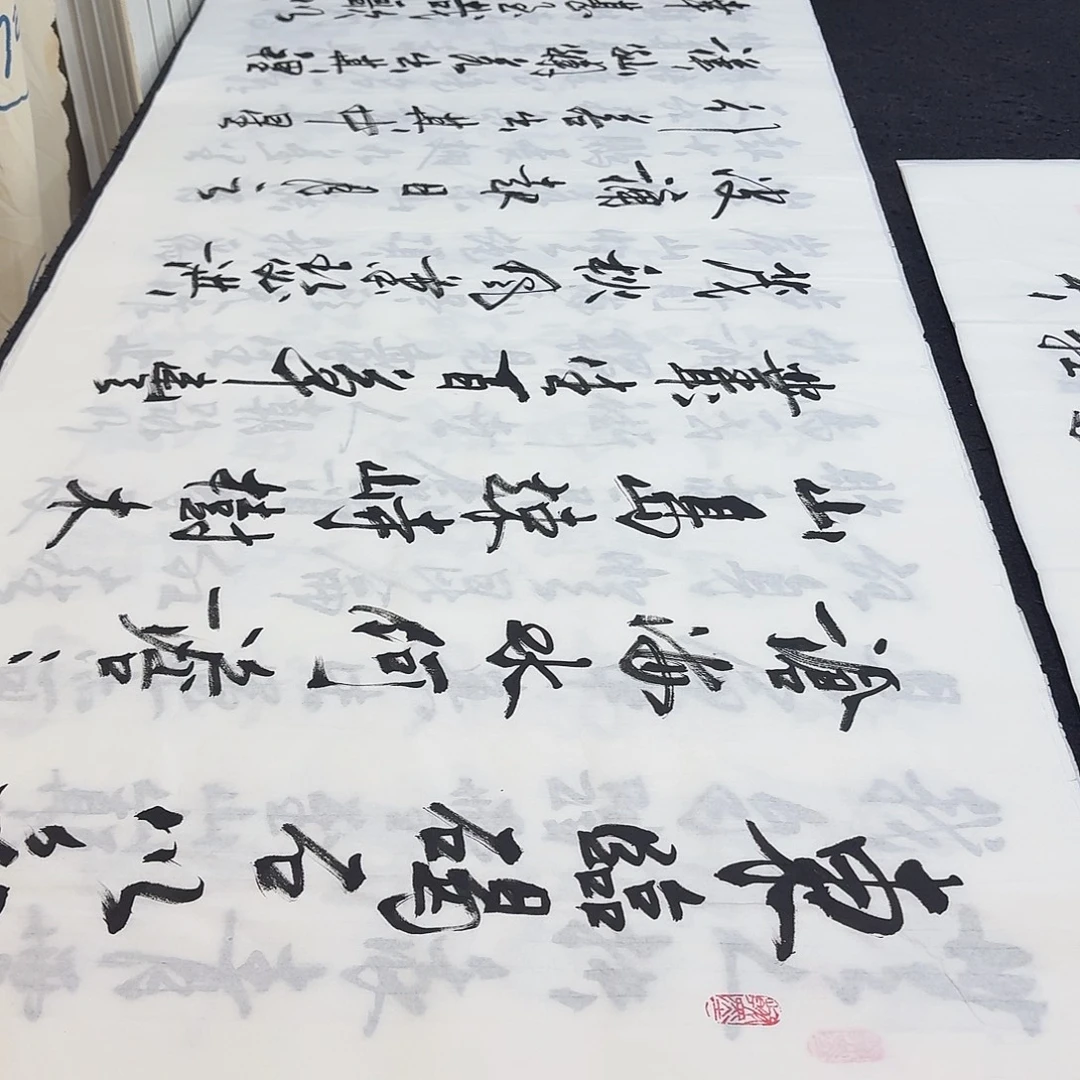 東臨碣石以
滄海水何澹
山島竦峙樹木
叢生百草豐
茂秋風蕭瑟洪
波湧起日月之
行若出其中星
漢燦爛若出其裏
幸甚至哉歌以